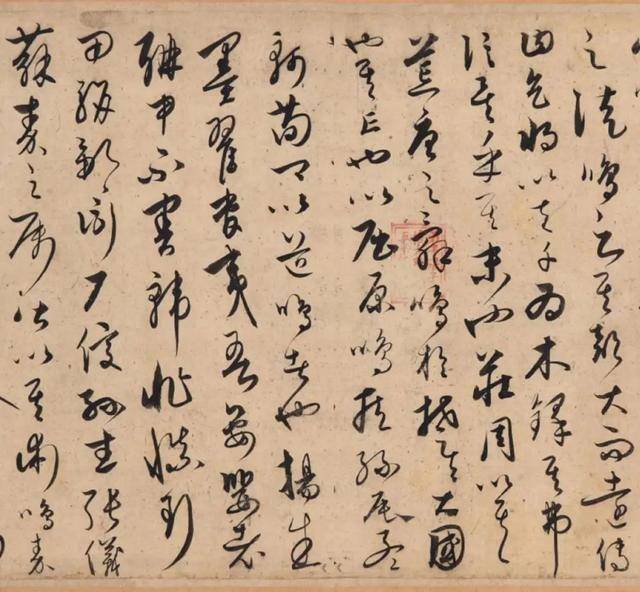 之徒鳴之其聲大而遠傳
曰天將以夫子為木鐸其弗
信矣乎其末也莊周以其
荒唐之辭鳴於楚楚大國
也其亡也以屈原鳴臧孫辰孟
軻荀卿以道鳴者也楊朱
墨翟管夷吾晏嬰老
聃申不害韓非慎到
田駢鄒衍尸佼孫武張儀
蘇秦之屬皆以其術鳴秦